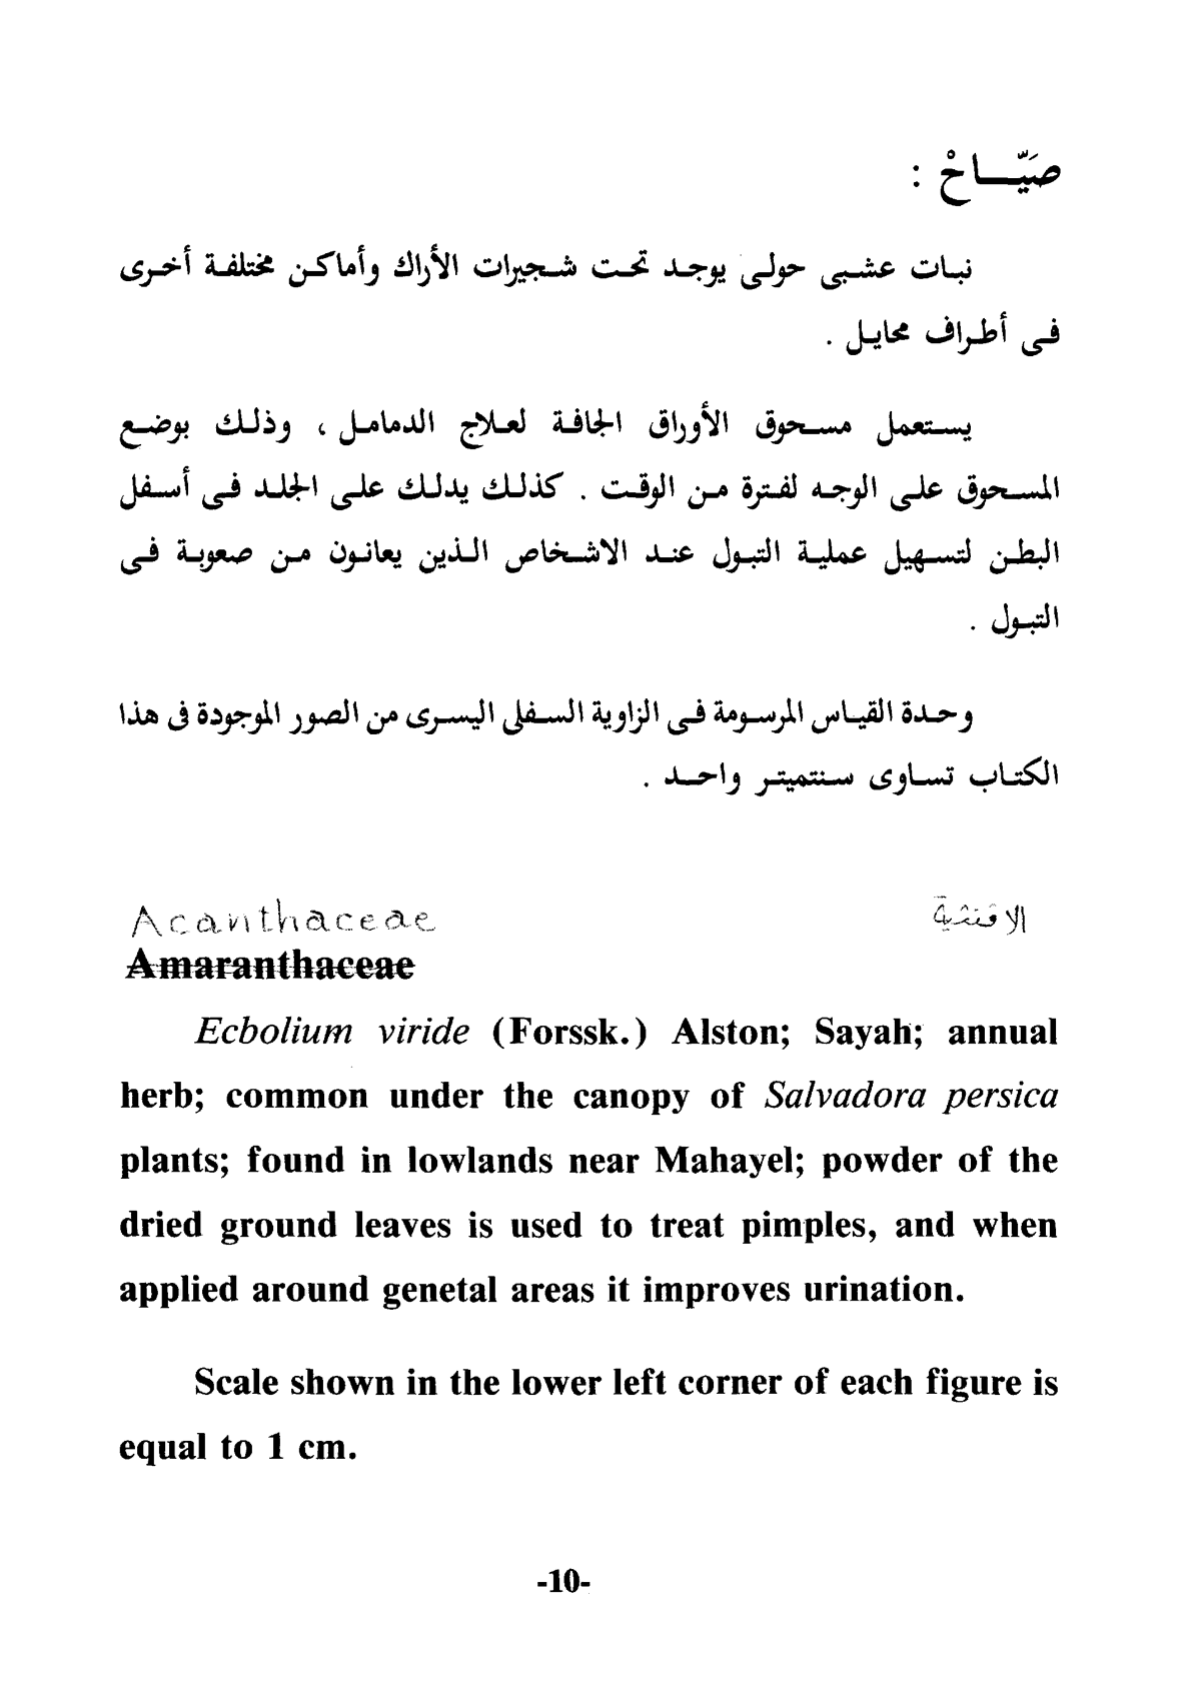 صَيَّـــاحْ :
نبـات عشـبى حولـى يوجـد تحـت شـجيرات الأراك وأماكـن مختلفـة أخـرى
فـى أطـراف محايـل .
يسـتعمل مسـحوق الأوراق الجافـة لعـلاج الدمامـل ، وذلـك بوضـع
المسـحوق علـى الوجـه لفـترة مـن الوقـت . كذلـك يدلـك علـى الجلـد فـى أسـفل
البطـن لتسـهيل عمليـة التبـول عنـد الاشـخاص الـذين يعانـون مـن صعوبـة فـى
التبـول .
وحـدة القيـاس المرسـومة فـى الزاوية السـفلى اليسـرى من الصور الموجودة فى هذا
الكتـاب تسـاوى سـنتميتـر واحـد .
Acanthaceae الاقنثية
Amaranthaceae
Ecbolium viride (Forssk.) Alston; Sayah; annual
herb; common under the canopy of Salvadora persica
plants; found in lowlands near Mahayel; powder of the
dried ground leaves is used to treat pimples, and when
applied around genetal areas it improves urination.
Scale shown in the lower left corner of each figure is
equal to 1 cm.
-10-